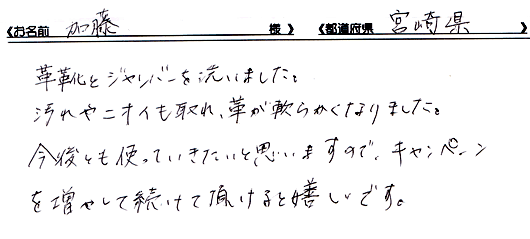 《お名前 加藤 様》 《都道府県 宮崎県 》
革靴とジャンパーを洗いました。
汚れやニオイも取れ、革が軟らかくなりました。
今後とも使っていきたいと思いますので、キャンペーン
を増やして続けて頂けると嬉しいです。